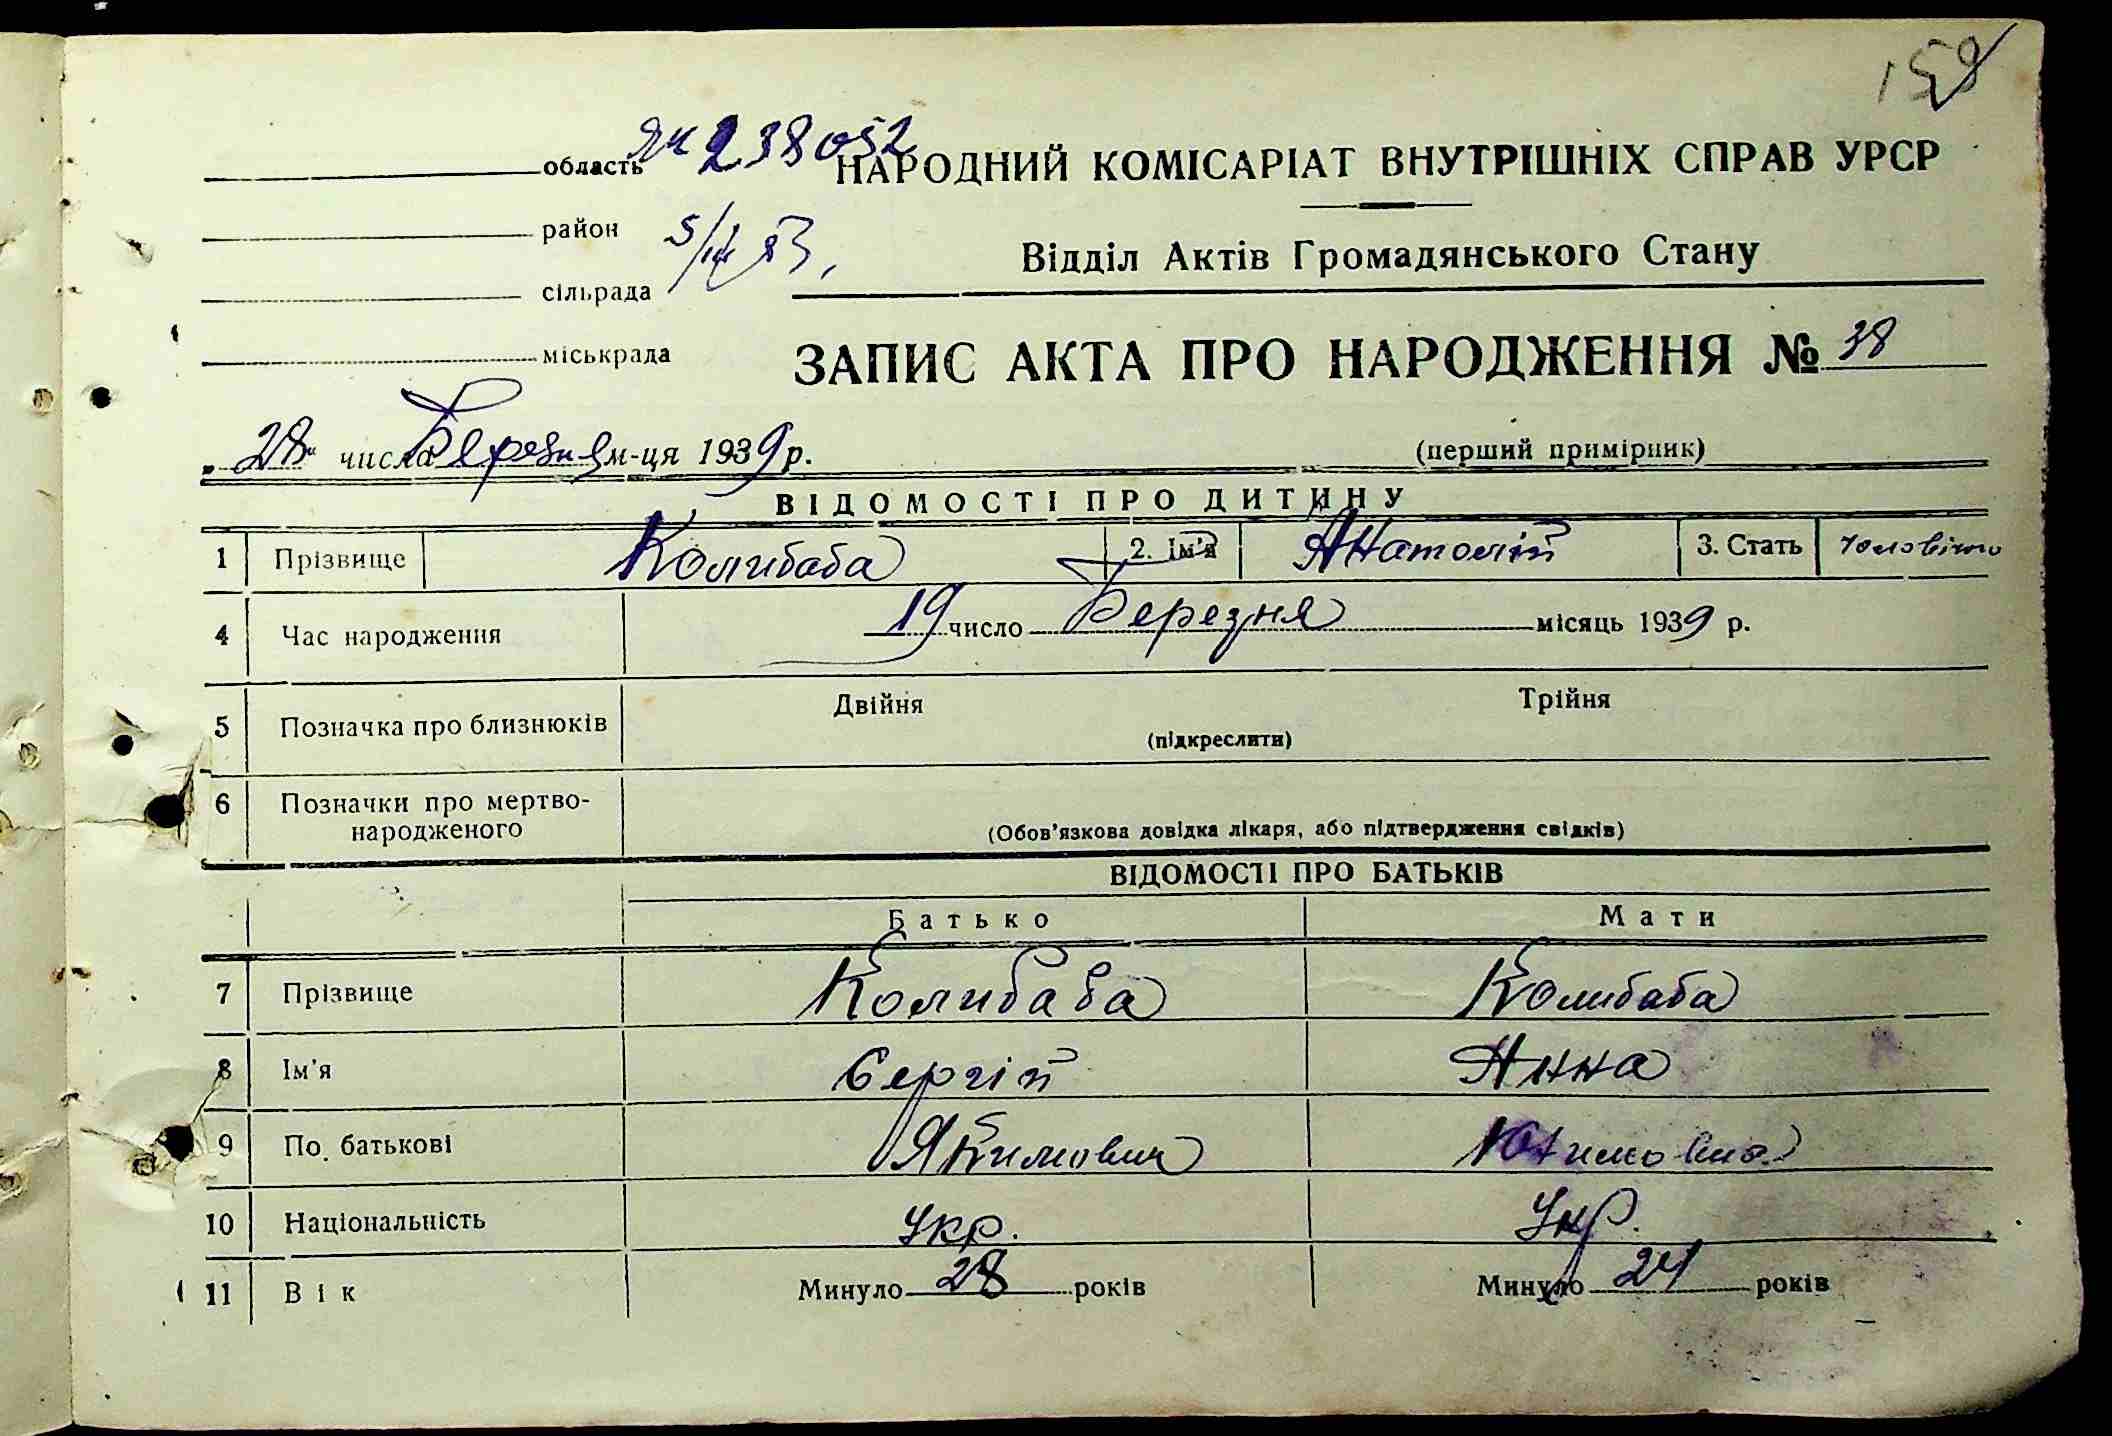 158
область ЯЧ 238052
НАРОДНИЙ КОМІСАРІАТ ВНУТРІШНІХ СПРАВ УРСР
район
Відділ Актів Громадянського Стану
сільрада
міськрада
ЗАПИС АКТА ПРО НАРОДЖЕННЯ № 38
„28“ числа Березня м-ця 1939 р.
(перший примірник)
ВІДОМОСТІ ПРО ДИТИНУ
1 Прізвище Колибаба 2. Ім'я Анатолій 3. Стать
4 Час народження 19 число Березня місяць 1939 р.
5 Позначка про близнюків Двійня Трійня
(підкреслити)
6 Позначки про мертво-
народженого
(Обов'язкова довідка лікаря, або підтвердження свідків)
ВІДОМОСТІ ПРО БАТЬКІВ
Батько Мати
7 Прізвище Колибаба Колибаба
8 Ім'я Сергій Анна
9 По батькові Якимович
10 Національність Укр. Укр.
11 Вік Минуло 28 років Минуло 24 років